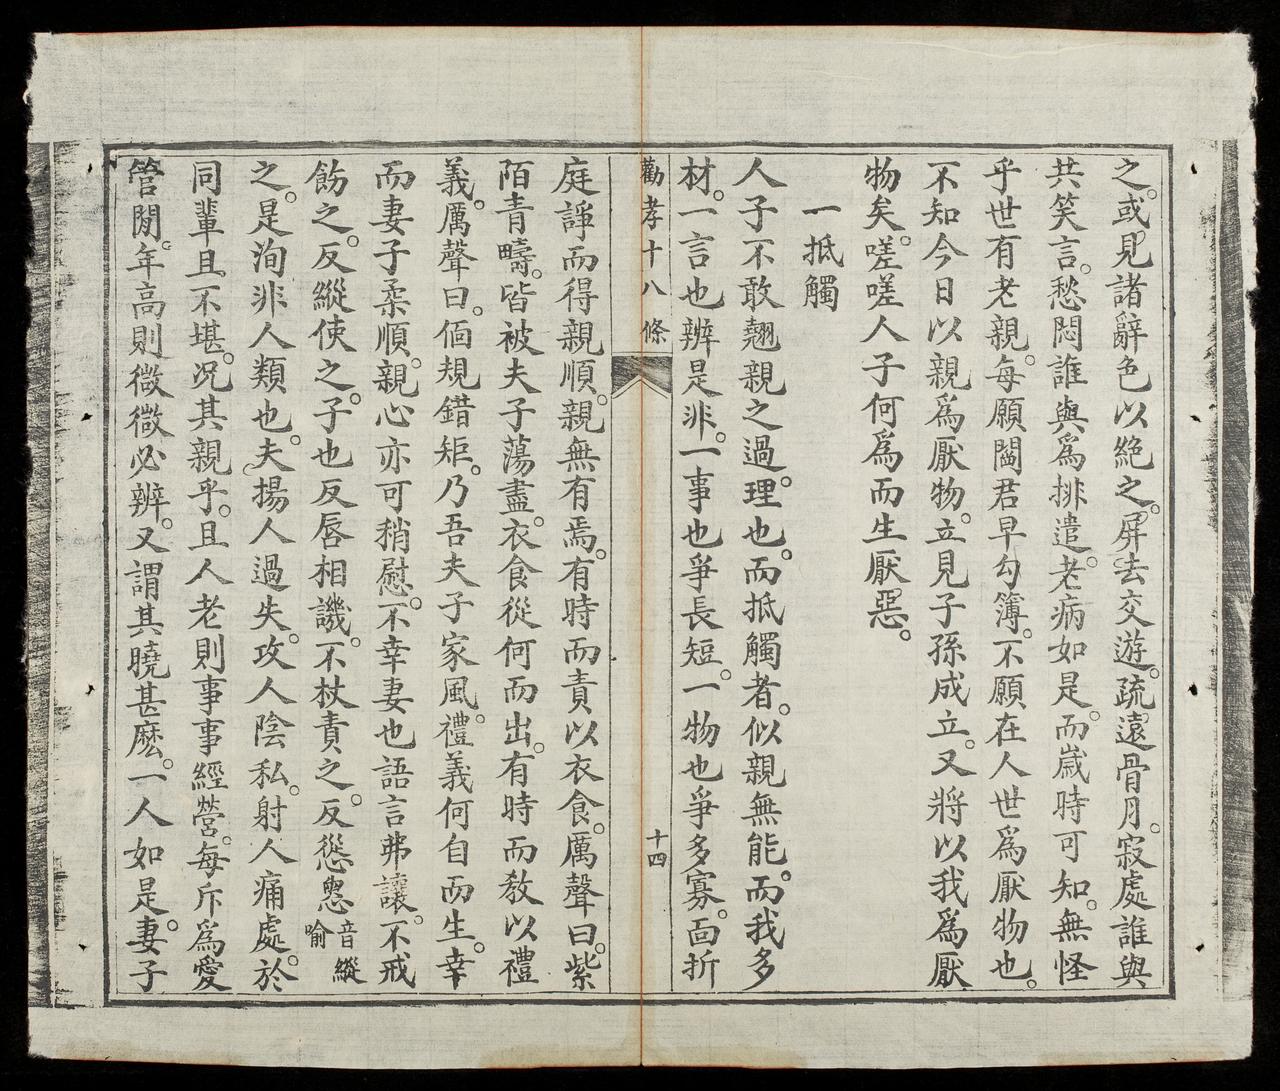 之。或見諸辭色以絶之。屛去交遊。疏遠骨月。寂處誰與
共笑言。愁悶誰與爲排遣。老病如是。而嵗時可知。無怪
乎世有老親。每願閻君早勾簿。不願在人世爲厭物也。
不知今日以親爲厭物。立見子孫成立。又將以我爲厭
物矣。嗟嗟人子何爲而生厭惡。
一抵觸
人子不敢翹親之過。理也。而抵觸者。似親無能。而我多
材。一言也辨是非。一事也爭長短。一物也爭多寡。面折
勸孝十八條
十四
庭諍而得親順。親無有焉。有時而責以衣食。厲聲曰。紫
陌青疇。皆被夫子蕩盡。衣食從何而出。有時而敎以禮
義。厲聲曰。偭規錯矩。乃吾夫子家風。禮義何自而生。幸
而妻子柔順。親心亦可稍慰。不幸妻也語言弗讓。不戒
飭之。反縱使之。子也反唇相譏。不杖責之。反慫慂音縱喻
之。是洵非人類也。夫揚人過失。攻人陰私。射人痛處。於
同輩且不堪。况其親乎。且人老則事事經營。每斥爲愛
管閒。年高則微微必辨。又謂其曉甚麽。一人如是。妻子